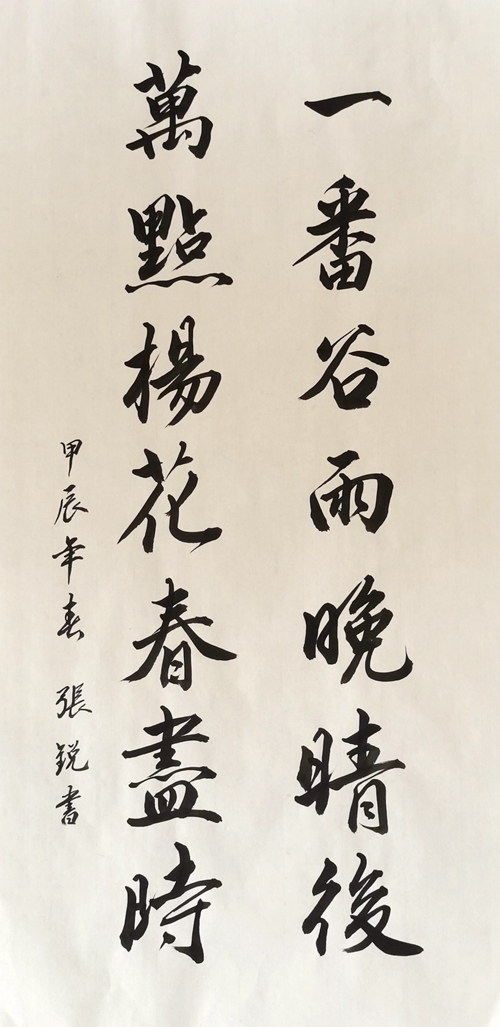 一番谷雨晚晴後
萬點楊花春盡時
甲辰年春 張銳書